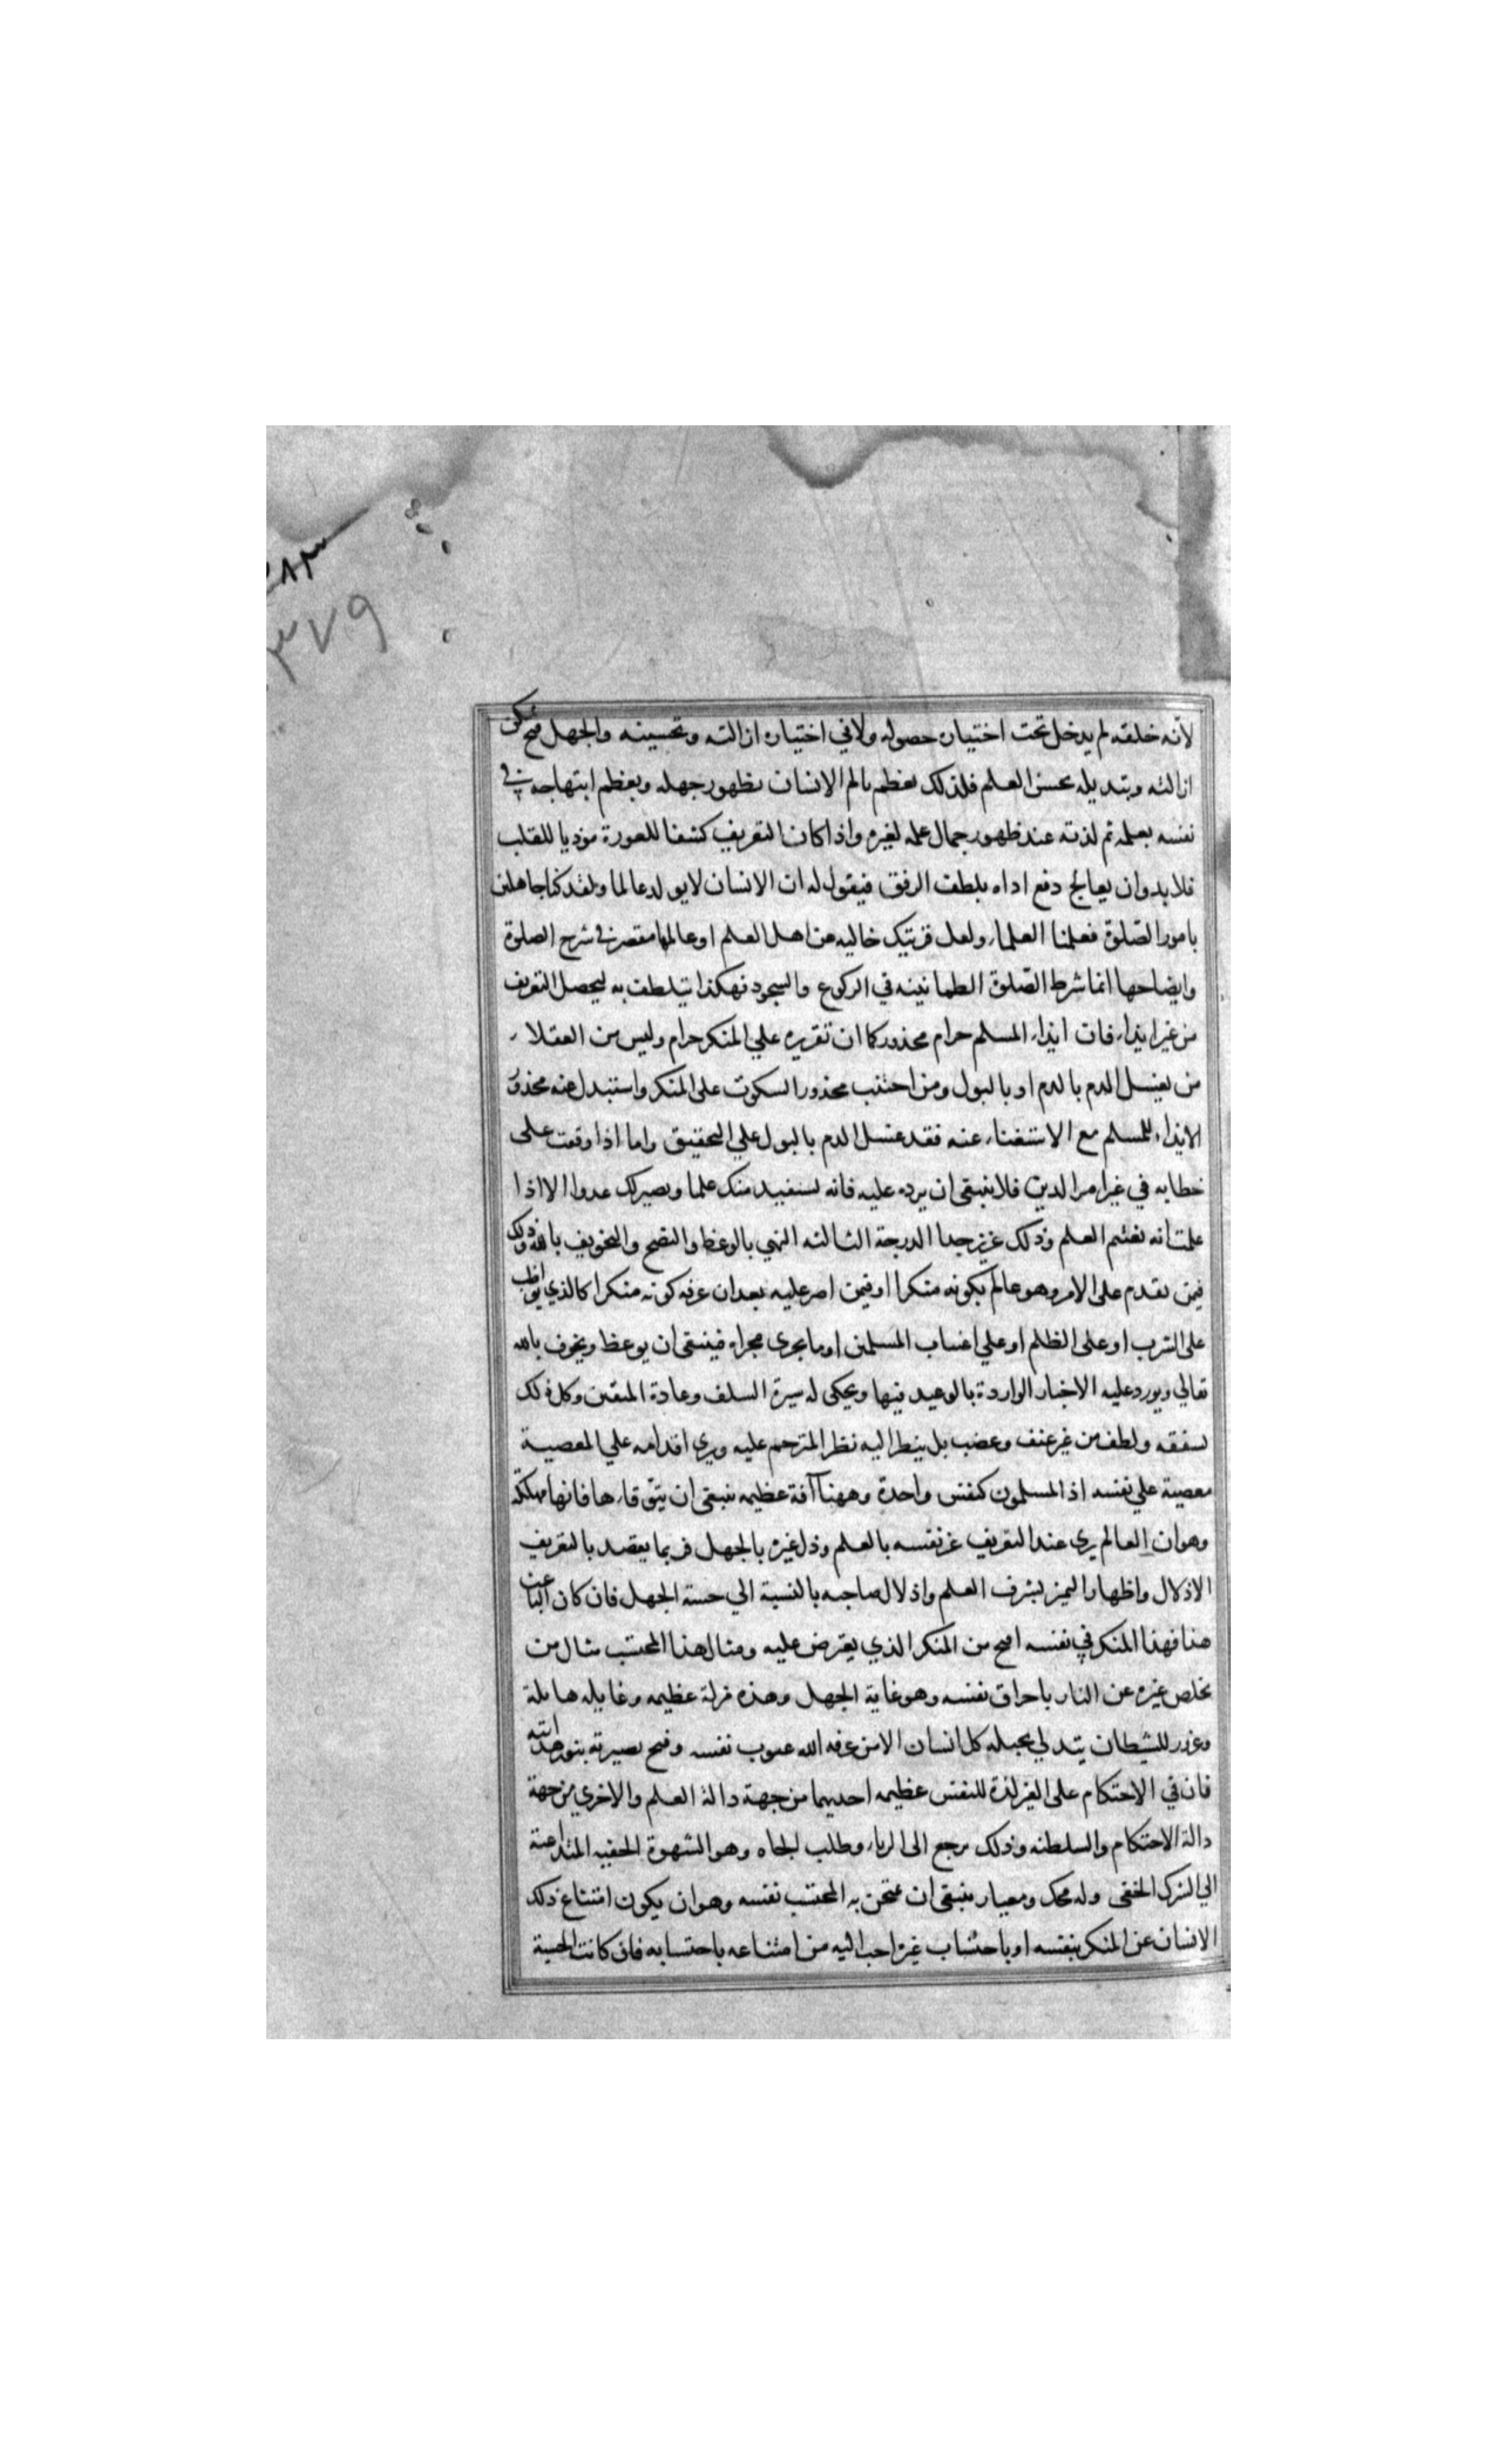 ٣٨٣
٣٧٩
لانه خلقه لم يدخل تحت اختياره حصوله ولا في اختياره ازالته وتحسينه والجهل قبح يمكن
ازالته وتبديله بحسن العلم فلذلك يعظم تالم الانسان بظهور جهله ويعظم ابتهاجه في
نفسه بعلمه ثم لذته عند ظهور جمال علمه لغيره واذا كان التعريف كشفا للعورة موديا للقلب
فلا بد وان يعالج دفع اداه بلطف الرفق فيقول له ان الانسان لا يولد عالما ولقد كنا جاهلين
بامور الصلوة فعلمنا العلماء ولعل قريتك خاليه من اهل العلم او عالمها مقصر في شرح الصلوة
وايضاحها انما شرط الصلوة الطمانينه في الركوع والسجود فهكذا يتلطف به ليحصل التعريف
من غير ايذاء فان ايذاء المسلم حرام محذور كما ان تقريره علي المنكر حرام وليس من العقلاء
من يغسل الدم بالدم او بالبول ومن اجتنب محذور السكوت على المنكر واستبدل عنه محذور
الايذاء للمسلم مع الاستغناء عنه فقد غسل الدم بالبول علي التحقيق واما اذا وقعت على
خطايه في غير امر الدين فلا ينبغي ان يرده عليه فانه يستفيد منك علما ويصير لك عدوا الا اذا
علمت انه يغتنم العلم وذلك عزيز جدا الدرجة الثالثه النهي بالوعظ والنصح والتخويف بالله وذلك
فيمن يقدم على الامر وهو عالم بكونه منكرا او فيمن اصر عليه بعد ان عرف كونه منكرا كالذي يواظب
على الشرب او على الظلم او علي اغتياب المسلمين او ما يجرى مجراه فينبغي ان يوعظ ويخوف بالله
تعالي ويورد عليه الاخبار الواردة بالوعيد فيها ويحكى له سيرة السلف وعادة المتقين وكل ذلك
بشفقه ولطف من غير عنف وغضب بل ينظر اليه نظر المترحم عليه ويرى اقدامه علي المعصية
معصية علي نفسه اذ المسلمون كنفس واحدة وههنا آفة عظيمه ينبغي ان يتوقاها فانها مهلكة
وهو ان العالم يرى عند التعريف عز نفسه بالعلم وذل غيره بالجهل فربما يقصد بالتعريف
الاذلال واظهار التميز بشرف العلم واذلال صاحبه بالنسبة الي خسة الجهل فان كان الباعث
هذا فهذا المنكر في نفسه اقبح من المنكر الذي يعترض عليه ومثال هذا المحتسب مثال من
يخلص غيره عن النار باحراق نفسه وهو غاية الجهل وهذه مزلة عظيمه وغايله هايلة
وغرور للشيطان يتدلي بحبله كل انسان الا من عرفه الله عيوب نفسه وفتح بصيرته بنور هدايته
فان في الاحتكام على الغير لذة للنفس عظيمه احديهما من جهة دالة العلم والاخرى من جهة
دالة الاحتكام والسلطنه وذلك يرجع الى الرياء وطلب الجاه وهو الشهوة الخفيه المتداعية
الي الشرك الخفى وله محك ومعيار ينبغي ان يمتحن به المحتسب نفسه وهو ان يكون امتناع ذلك
الانسان عن المنكر بنفسه او باحتساب غيره احب اليه من امتناعه باحتسابه فان كانت الحسبة